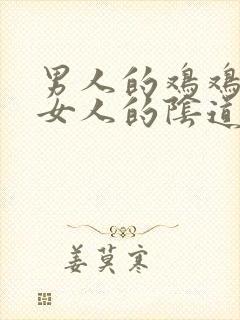 男人的鸡鸡
女人的陰道
姜莫寒